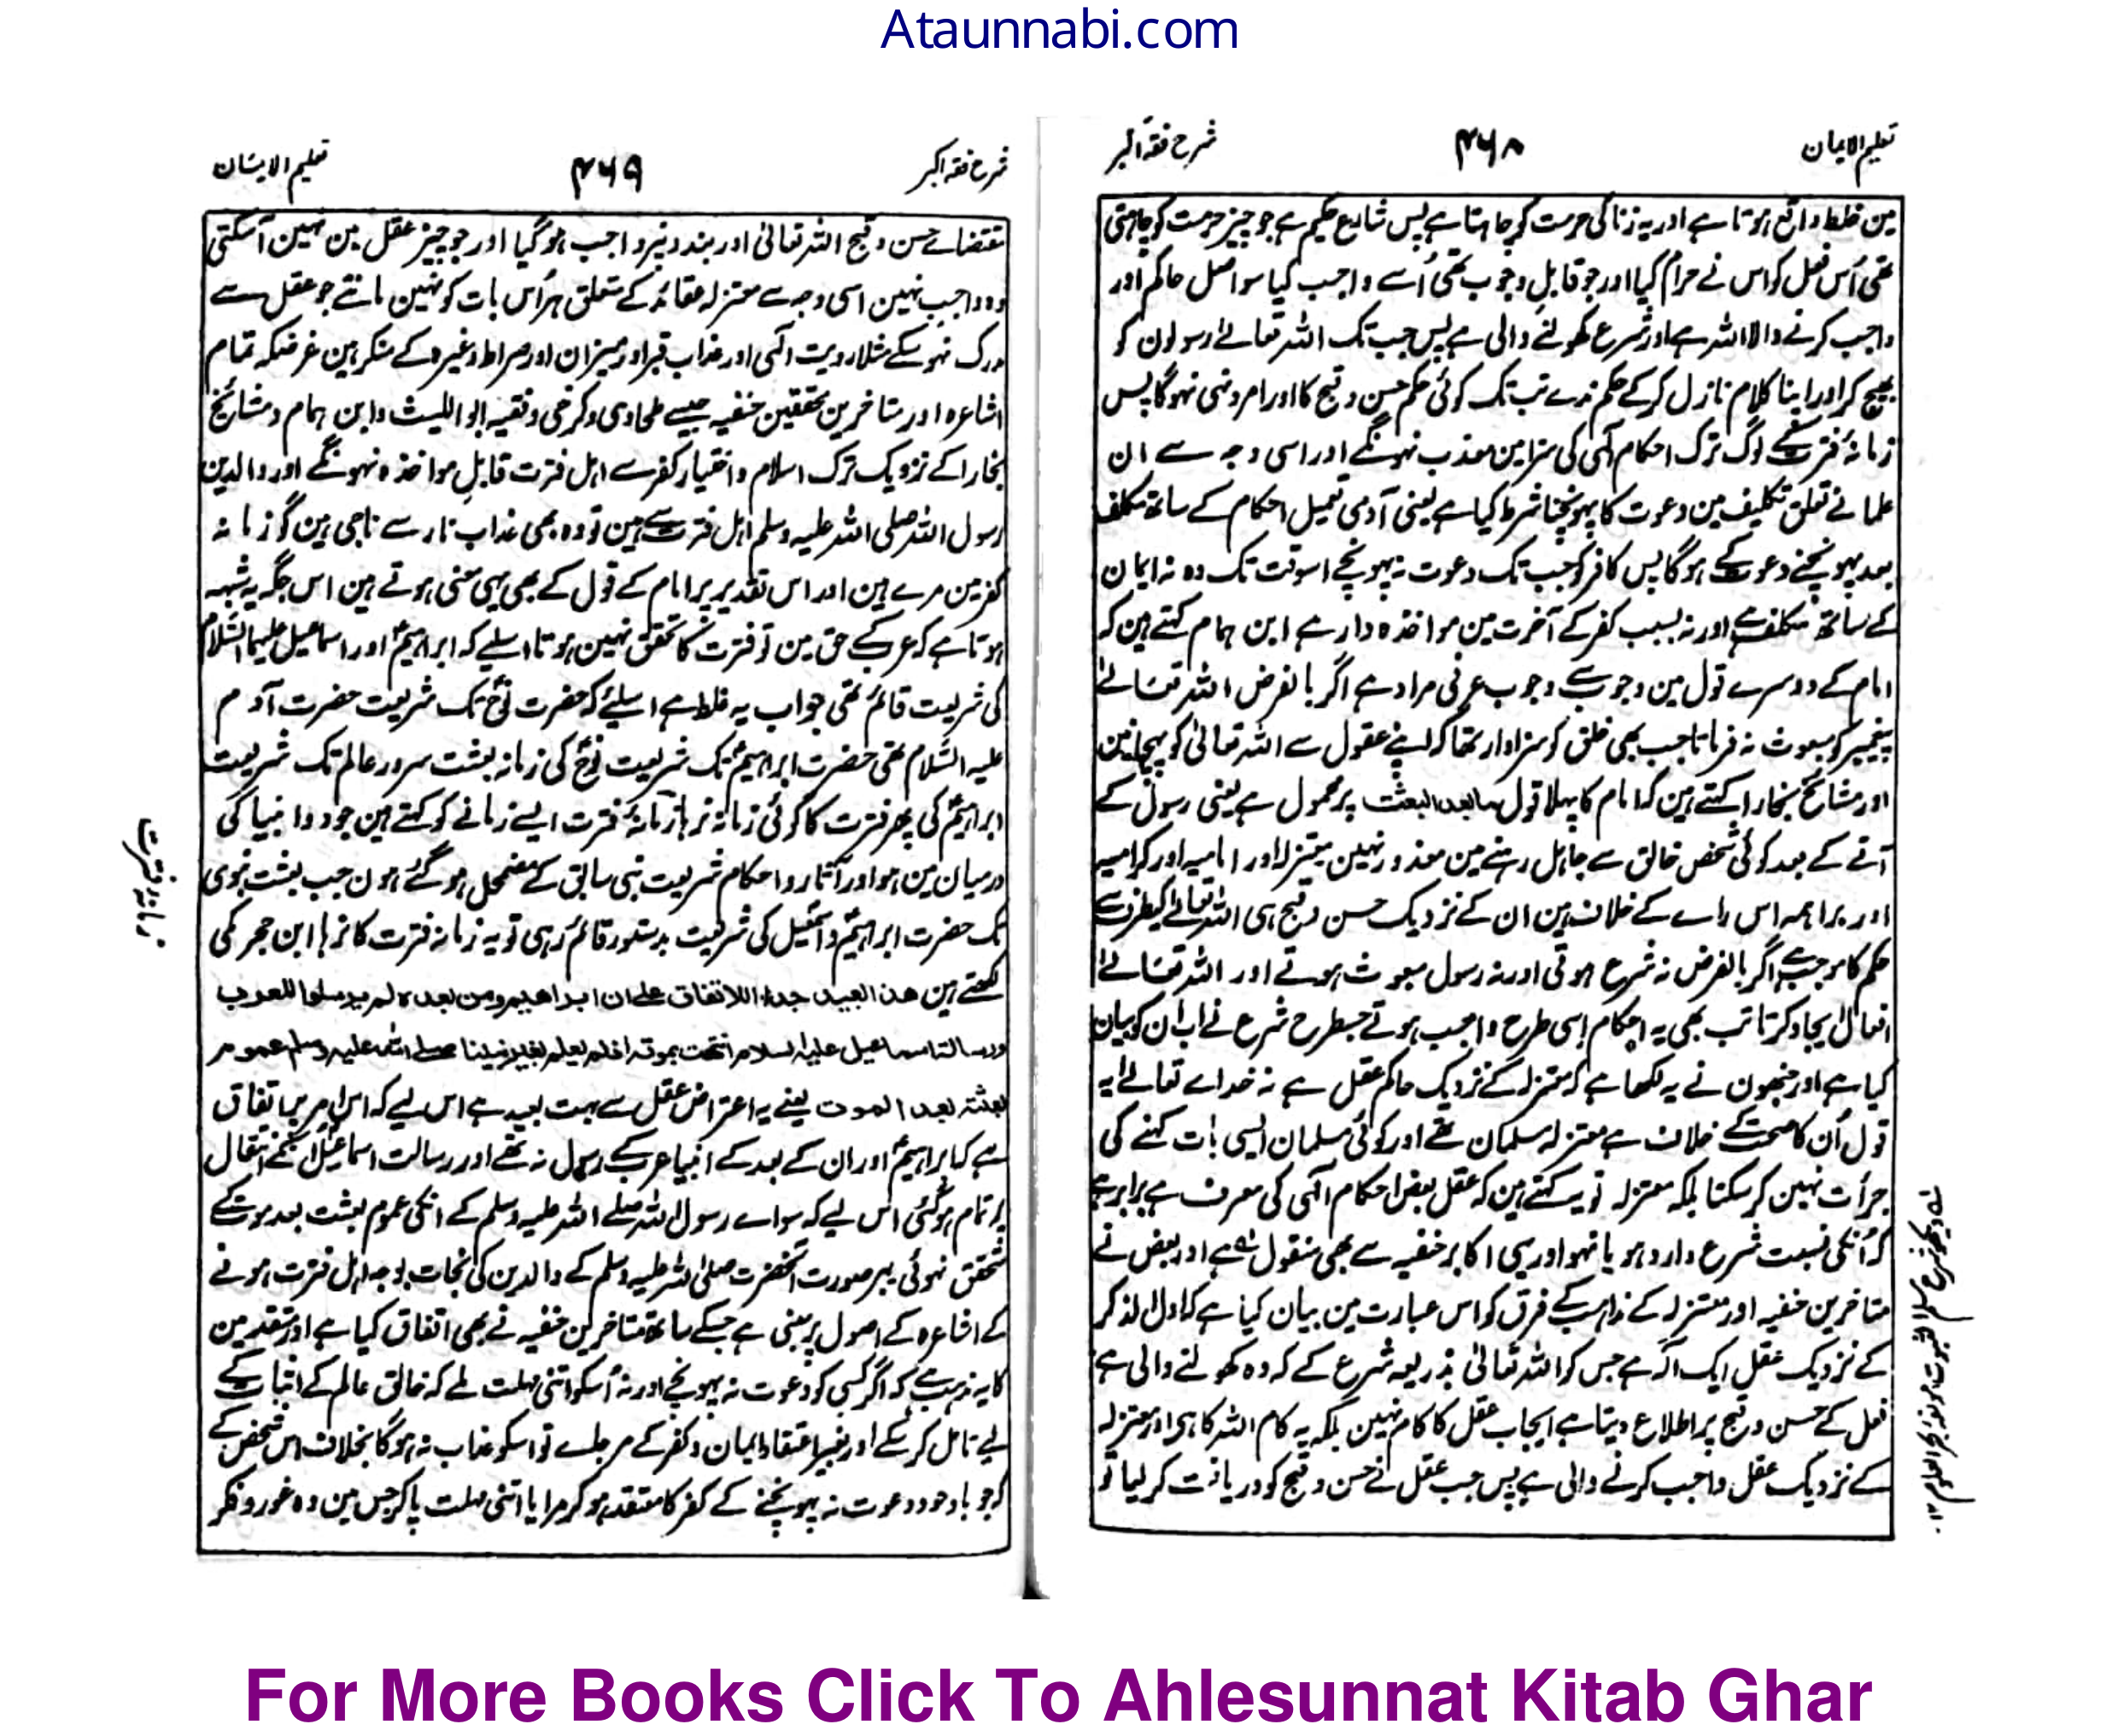 Ataunnabi.com
تعلیم الایمان
۴۶۸
شرح فقہ اکبر
مین خلط واقع ہوتا ہے اور یہ زنا کی حرمت کو چاہتا ہے پس شارع حکیم ہے جو چیز حرمت کو چاہتی
تھی اُس فعل کو اس نے حرام کیا اور جو قابلِ وجوب تھی اُسے واجب کیا سو اصل حاکم اور
واجب کرنے والا اللہ ہے اور شرع کھولنے والی ہے پس جب تک اللہ تعالےٰ رسولون کو
بھیج کر اور اپنا کلام نازل کر کے حکم ندے تب تک کوئی حکم حسن و قبح کا اور امر و نہی نہوگا پس
زمانۂ فترت کے لوگ ترک احکام الٰہی کی سزا مین معذب نہونگے اور اسی وجہ سے ان
علما نے تعلق تکلیف مین دعوت کا پہونچنا شرط کیا ہے یعنی آدمی تعمیل احکام کے ساتھ مکلف
بعد پہونچنے دعوت کے ہوگا پس کافر کو جب تک دعوت نہ پہونچے اسوقت تک وہ نہ ایمان
کے ساتھ مکلف ہے اور نہ بسبب کفر کے آخرت مین مواخذہ دار ہے ابن ہمام کہتے ہین کہ
امام کے دوسرے قول مین وجوب سے وجوب عرفی مراد ہے اگر بالفرض اللہ تعالےٰ
پیغمبر کو مبعوث نہ فرماتا جب بھی خلق کو سزاوار تھا کہ اپنے عقول سے اللہ تعالیٰ کو پہچانین
اور مشائخ بخارا کہتے ہین کہ امام کا پہلا قول مابعد البعثت پر محمول ہے یعنی رسول کے
آنے کے بعد کوئی شخص خالق سے جاہل رہنے مین معذور نہین معتزلہ اور امامیہ اور کرامیہ
اور براہمہ اس راے کے خلاف ہین ان کے نزدیک حسن و قبح ہی اللہ تعالےٰ کیطرف سے
حکم کا موجب ہے اگر بالفرض نہ شرع ہوتی اور نہ رسول مبعوث ہوتے اور اللہ تعالےٰ
افعال ایجاد کرتا تب بھی یہ احکام اسی طرح واجب ہوتے جسطرح شرع نے اب ان کو بیان
کیا ہے اور جنھون نے یہ لکھا ہے کہ معتزلہ کے نزدیک حاکم عقل ہے نہ خداے تعالےٰ یہ
قول اُن کا صحت کے خلاف ہے معتزلہ مسلمان تھے اور کوئی مسلمان ایسی بات کہنے کی
جرأت نہین کر سکتا بلکہ معتزلہ تو یہ کہتے ہین کہ عقل بعض احکام الٰہی کی معرف ہے برابر ہے
کہ اُنکی نسبت شرع وارد ہو یا نہو اور یہی اکابر حنفیہ سے بھی منقول ہے اور بعض نے
متاخرین حنفیہ اور معتزلہ کے مذاہب کے فرق کو اس عبارت مین بیان کیا ہے کہ اول الذکر
کے نزدیک عقل ایک آلہ ہے جس کو اللہ تعالیٰ بذریعہ شرع کے کہ وہ کھولنے والی ہے
فعل کے حسن و قبح پر اطلاع دیتا ہے ایجاب عقل کا کام نہین بلکہ یہ کام اللہ کا ہی اور معتزلہ
کے نزدیک عقل واجب کرنے والی ہے پس جب عقل نے حسن و قبح کو دریافت کر لیا تو
شرح فقہ اکبر
۴۶۹
تعلیم الایمان
مقتضاے حسن و قبح اللہ تعالیٰ اور بندون پر واجب ہو گیا اور جو چیز عقل مین نہین آسکتی
وہ واجب نہین اسی وجہ سے معتزلہ عقائد کے متعلق ہر اُس بات کو نہین مانتے جو عقل سے
مدرک نہو سکے مثلا رویت الٰہی اور عذاب قبر اور میزان اور صراط وغیرہ کے منکر ہین غرضکہ تمام
اشاعرہ اور متاخرین محققین حنفیہ جیسے طحاوی و کرخی و فقیہ ابو اللیث و ابن ہمام و مشائخ
بخارا کے نزدیک ترک اسلام و اختیار کفر سے اہل فترت قابلِ مواخذہ نہونگے اور والدین
رسول اللہ صلی اللہ علیہ وسلم اہل فترت سے ہین تو وہ بھی عذاب نار سے ناجی ہین گو زمانہ
کفر مین مرے ہین اور اس تقدیر پر امام کے قول کے بھی یہی معنی ہوتے ہین اس جگہ یہ شبہہ
ہوتا ہے کہ عرب کے حق مین تو فترت کا تحقق نہین ہوتا اسلیے کہ ابراہیمؑ اور اسماعیل علیہما السّلام
کی شریعت قائم تھی جواب یہ غلط ہے اسلیے کہ حضرت نوحؑ تک شریعت حضرت آدم
علیہ السّلام تھی حضرت ابراہیمؑ تک شریعت نوحؑ کی زمانہ بعثت سرور عالم تک شریعت
ابراہیمؑ کی پھر فترت کا کوئی زمانہ نرہا زمانۂ فترت ایسے زمانے کو کہتے ہین جو دو انبیا کی
درمیان مین ہو اور آثار و احکام شریعت نبی سابق کے مضمحل ہو گئے ہون جب بعثت نبوی
تک حضرت ابراہیمؑ و اسمٰعیل کی شریعت بدستور قائم رہی تو یہ زمانہ فترت کا نرہا ابن حجر مکی
لکھتے ہین ھذا البعید جدا للاتفاق علی ان ابراھیم ومن بعدہ لم یرسلوا للعرب
ورسالۃ اسماعیل علیہ السلام انتھت بموتہ اذ لم یعلم لغیر نبینا صلے اللہ علیہ وسلم عموم
بعثتہ بعد الموت یعنے یہ اعتراض عقل سے بہت بعید ہے اس لیے کہ اس امر پر اتفاق
ہے کہ ابراہیمؑ اور ان کے بعد کے انبیا عرب کے رسول نہ تھے اور رسالت اسماعیلؑ انکے انتقال
پر تمام ہو گئی اس لیے کہ سواے رسول اللہ صلے اللہ علیہ وسلم کے انکی عموم بعثت بعد موت کے
متحقق نہوئی بہر صورت آنحضرت صلی اللہ علیہ وسلم کے والدین کی نجات بوجہ اہل فترت ہونے
کے اشاعرہ کے اصول پر مبنی ہے جسکے ساتھ متاخرین حنفیہ نے بھی اتفاق کیا ہے اور متقدمین
کا یہ مذہب ہے کہ اگر کسی کو دعوت نہ پہونچے اور نہ اُسکو اتنی مہلت ملے کہ خالق عالم کے اثبات کے
لیے تامل کر سکے اور بغیر اعتقاد ایمان و کفر کے مر جاے تو اسکو عذاب نہوگا بخلاف اس شخص کے
کہ جو باوجود دعوت نہ پہونچنے کے کفر کا معتقد ہو کر مرا یا اتنی مہلت پا کر جس مین وہ غور و فکر
زمانۂ فترت
For More Books Click To Ahlesunnat Kitab Ghar